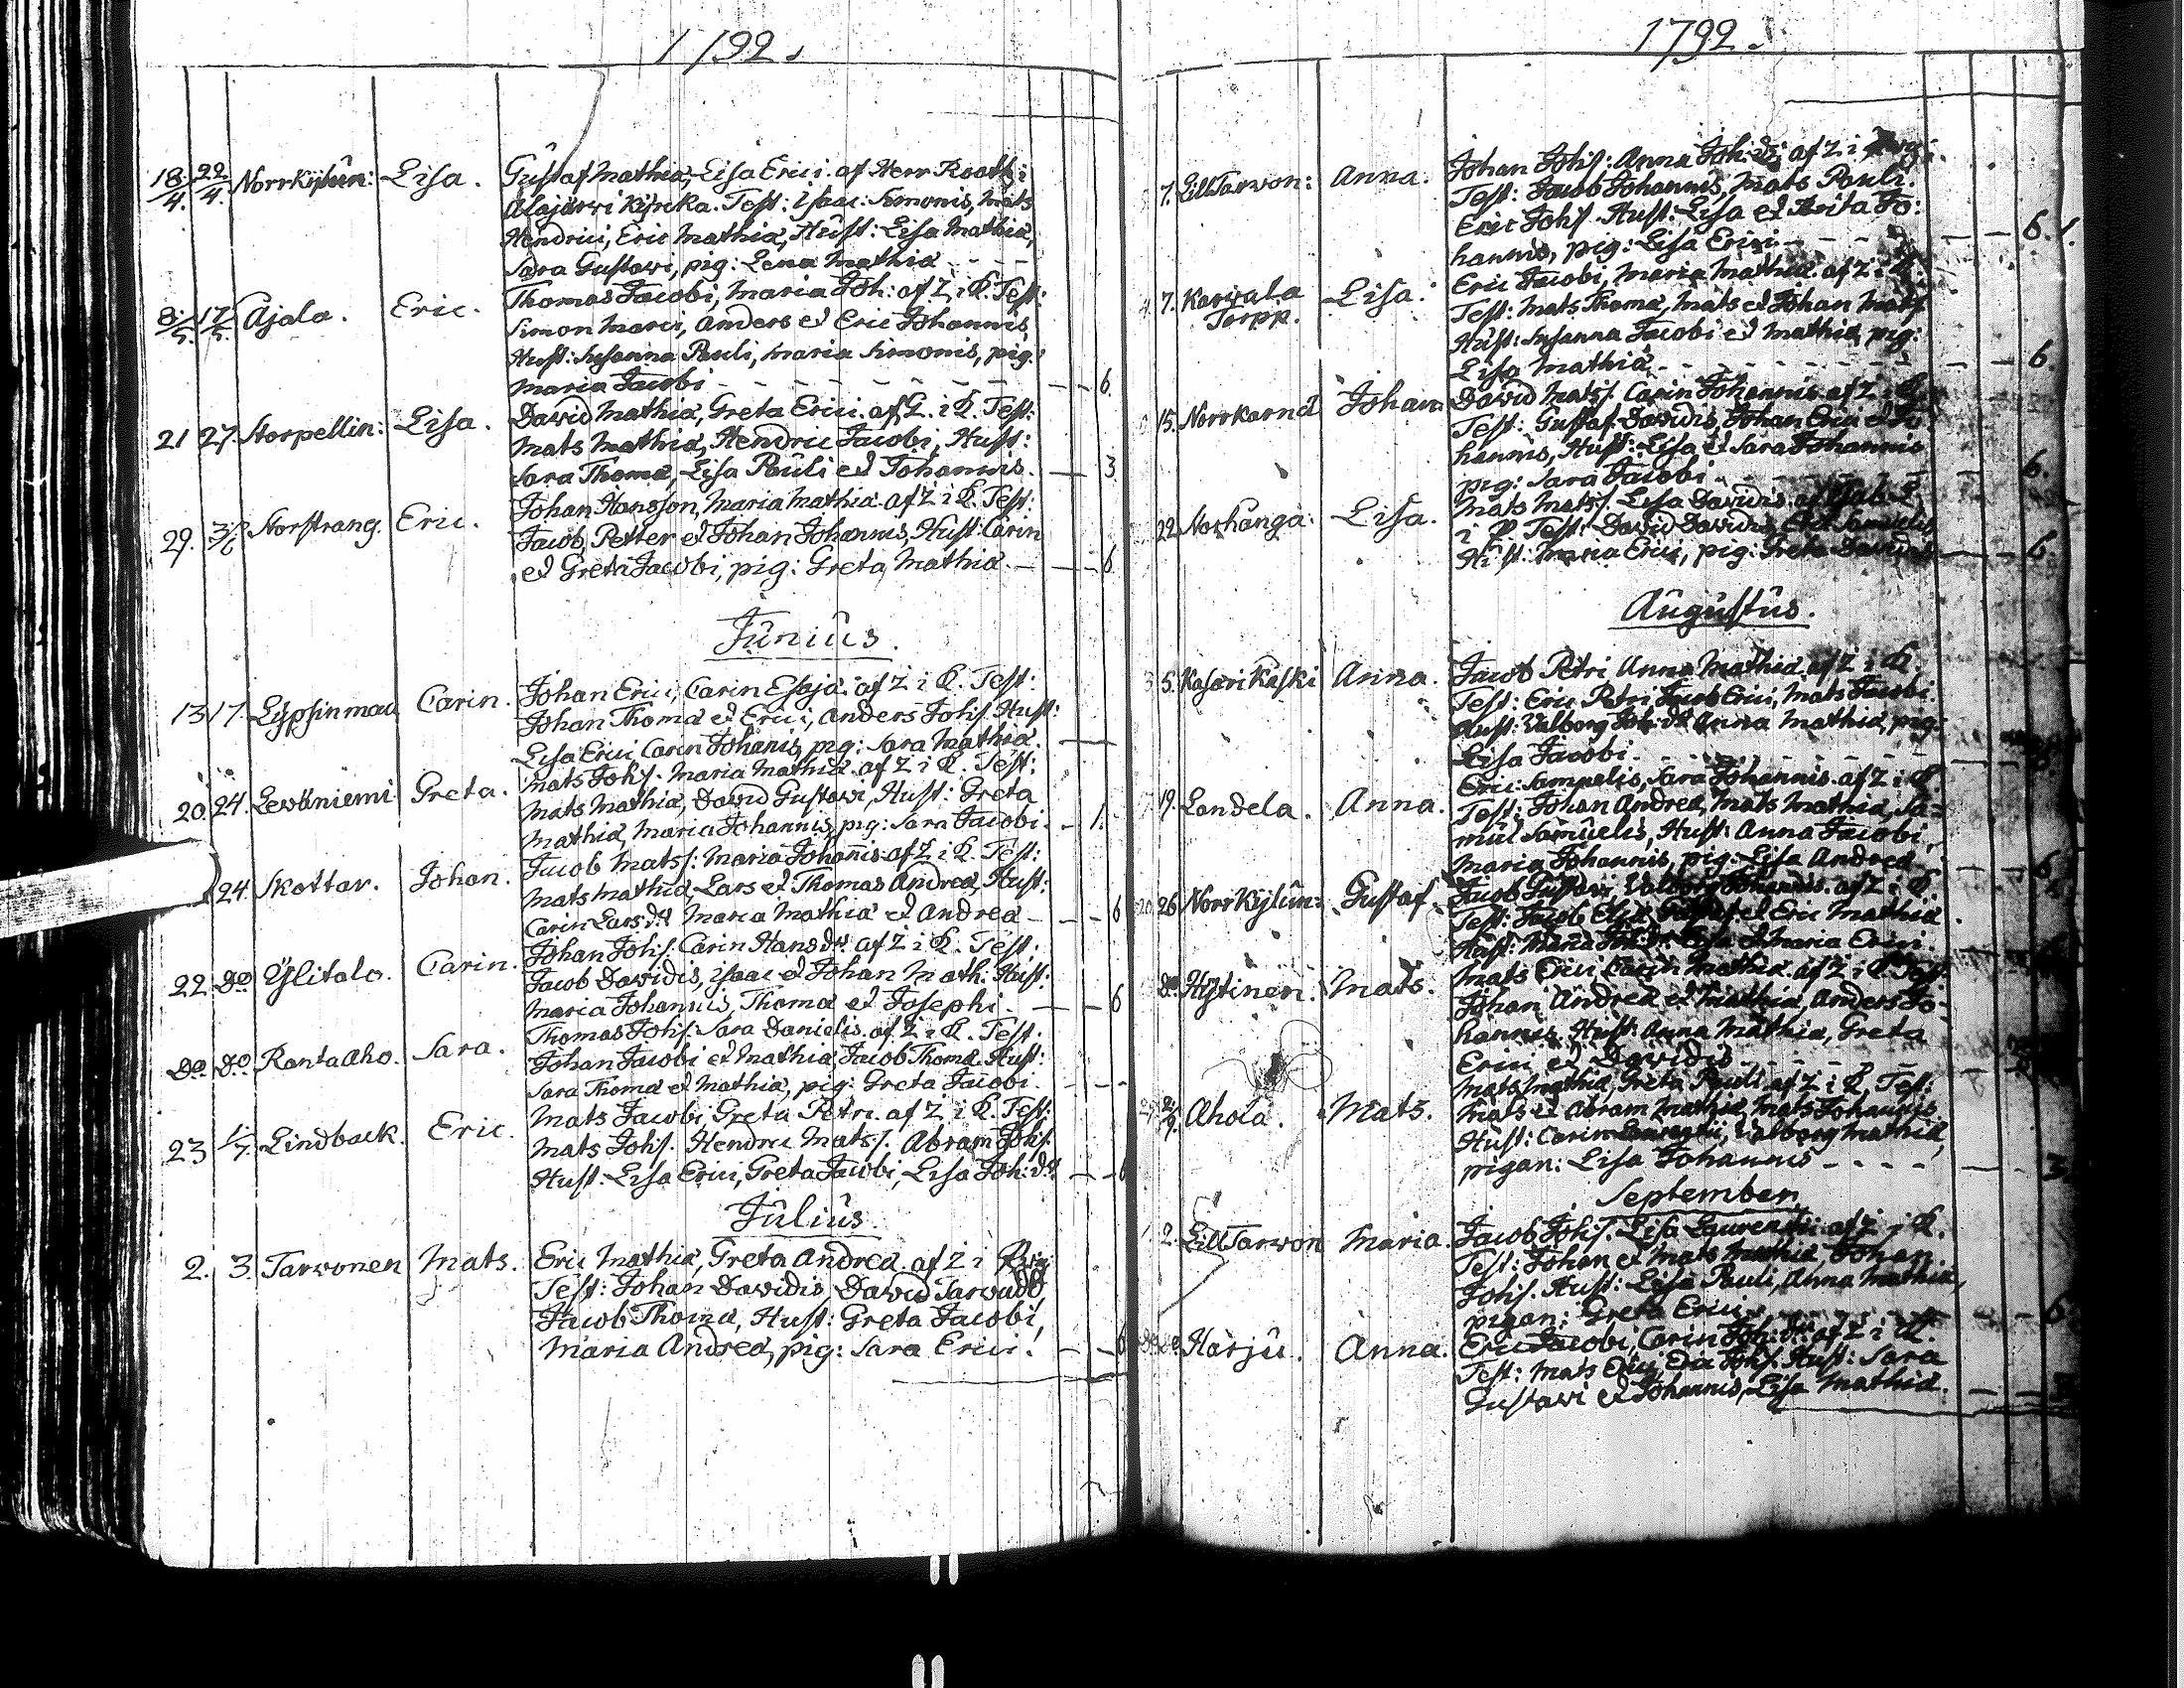 1792.
18/4. 22/4. Norrkylün: Lisa. Gustaf Mathiæ, Lisa Erici. af Herr Roath i
Alajärwi Kyrcka. Test: Isaac Simonis, Mats
Hendrici, Eric Mathiæ, Hust: Lisa Mathiæ,
Sara Gustawi, pig: Lena Mathiæ - - -
8/5. 17/5. Ajala. Eric. Thomas Jacobi, Maria Joh: af Z i K. Test:
Simon Marci, Anders et Eric Johannis
Hust: Susanna Pauli, Maria Simonis, pig:
Maria Jacobi - - - - - - - - 6
21 27. Storpellin: Lisa. David Mathiæ, Greta Erici. af Z. i K. Test:
Mats Mathiæ, Hendric Jacobi, Hust:
Sara Thomæ, Lisa Pauli et Johannis. - 3
29. 3/6 Storstrang. Eric. Johan Hansson, Maria Mathiæ af Z i K. Test:
Jacob, Petter et Johan Johannis, Hust: Carin
et Greta Jacobi, pig: Greta Mathiæ. - - - 6
Junius.
13 17. Lypsinmaa Carin. Johan Erici, Carin Esajæ. af Z i K. Test:
Johan Thomæ et Erici, Anders Johs. Hust:
Lisa Erici Carin Johanis, pig: Sara Mathiæ. -
20. 24. Lewäniemi Greta. Mats Johs. Maria Mathiæ. af Z i K. Test:
Mats Mathiæ, David Gustawi, Hust: Greta
Mathiæ, Maria Johannis, pig: Sara Jacobi. - 1.
24. Skottar. Johan. Jacob Matss: Maria Johanis. af Z i K. Test:
Mats Mathiæ, Lars et Thomas Andreæ, Hust:
Carin Lars dr. Maria Mathiæ et Andreæ - - - 6
22 do Ylitalo. Carin. Johan Johs. Carin Hans dr. af Z i K. Test:
Jacob Dawidis, Isaac et Johan Math. Hust:
Maria Johannis, Thomæ et Josephi - - 6
do. do Rantaaho. Sara. Thomas Johs. Sara Danielis. af Z i K. Test.
Johan Jacobi et Mathiæ Jacob Thomæ. Hust:
Sara Thomæ et Mathiæ, pig: Greta Jacobi. - - -
23 1/7. Lindback. Eric. Mats Jacobi Greta Petri. af Z i K. Test:
Mats Johs. Hendric Mats s. Abram Johs.
Hust: Lisa Erici, Greta Jacobi, Lisa Joh: dr. - - 6
Julius.
2. 3. Tarwonen Mats. Eric Mathiæ, Greta Andreæ. af Z i
Test: Johan Dawidis, David
Jacob Thomæ, Hust: Greta Jacobi,
Maria Andreæ, pig: Sara Erici. - - 6
1792.
7. LillTarwon: Anna. Johan Johs: Anna Joh: dr. af Z i
Test: Jacob Johannis, Mats Pauli.
Eric Johs. Hust: Lisa et Brita Jo:
hannis, pig: Lisa Erici - - - - 6. 1.
7. Karwala Torpp. Lisa. Eric Jacobi, Maria Mathiæ. af Z i K.
Test: Mats Thomæ, Mats et Johan Mats
Hust: Susanna Jacobi et Mathiæ, pig:
Lisa Mathiæ, - - - - - - 6.
15. Norrkarnä Johan. David Mats s. Carin Johannis. af Z i K.
Test: Gustaf Dawidis, Johan Erici et Jo
hannis, Hust: Lisa et Sara Johannis
pig: Sara Jacobi 6.
22. Norhänga: Lisa. Mats Mats s. Lisa Dawidis af
i P. Test: David Dawidis, Eric Samuelis,
Hust: Maria Erici, pig: Greta Dawidis - 6.
Augustus.
5. Kasarikaski Anna. Jacob Petri Anna Mathiæ. af Z i K.
Test: Eric Petri Jacob Erici, Mats Jacobi
Hust: Walborg Joh: dr. Anna Mathiæ, pig:
Lisa Jacobi. - - - - - -
19. Landela. Anna. Eric Samuelis, Sara Johannis. af Z i K.
Test: Johan Andreæ, Mats Mathiæ, Sa=
muel Samuelis, Hust: Anna Jacobi,
Maria Johannis, pig: Lisa Andreæ - - - 6
26 Norrkylün: Gustaf. Jacob Gustawi, Walborg Johannis. af Z i K.
Test: Jacob et Eric Mathiæ
Hust: Maria Joh: dr. Lisa et Maria Erici.
do. Hytinen. Mats. Mats Erici Carin Mathiæ. af Z i K. Test:
Johan Andreæ et Mathiæ, Anders Jo-
hannis, Hust: Anna Mathiæ, Greta
Erici et Dawidis - - - - -
2/9. Ahola. Mats. Mats Mathiæ, Greta Pauli. af Z i K. Test:
Mats et Abram Mathiæ Mats Johannis
Hust: Carin Laurentii, Walborg Mathiæ,
pigan: Lisa Johannis - - - - 3
September.
2. LillTarwon Maria. Jacob Johs. Lisa Laurentii. af Z i K.
Test: Johan et Mats Mathiæ, Johan
Johs. Hust: Lisa Pauli, Anna Mathiæ,
pigan: Greta Erici - - - - 6
do. do. Harju. Anna. Eric Jacobi, Carin Joh: dr. af Z i K.
Test: Mats Erici, Eric Johs. Hust: Sara
Gustawi et Johannis, Lisa Mathiæ. - -